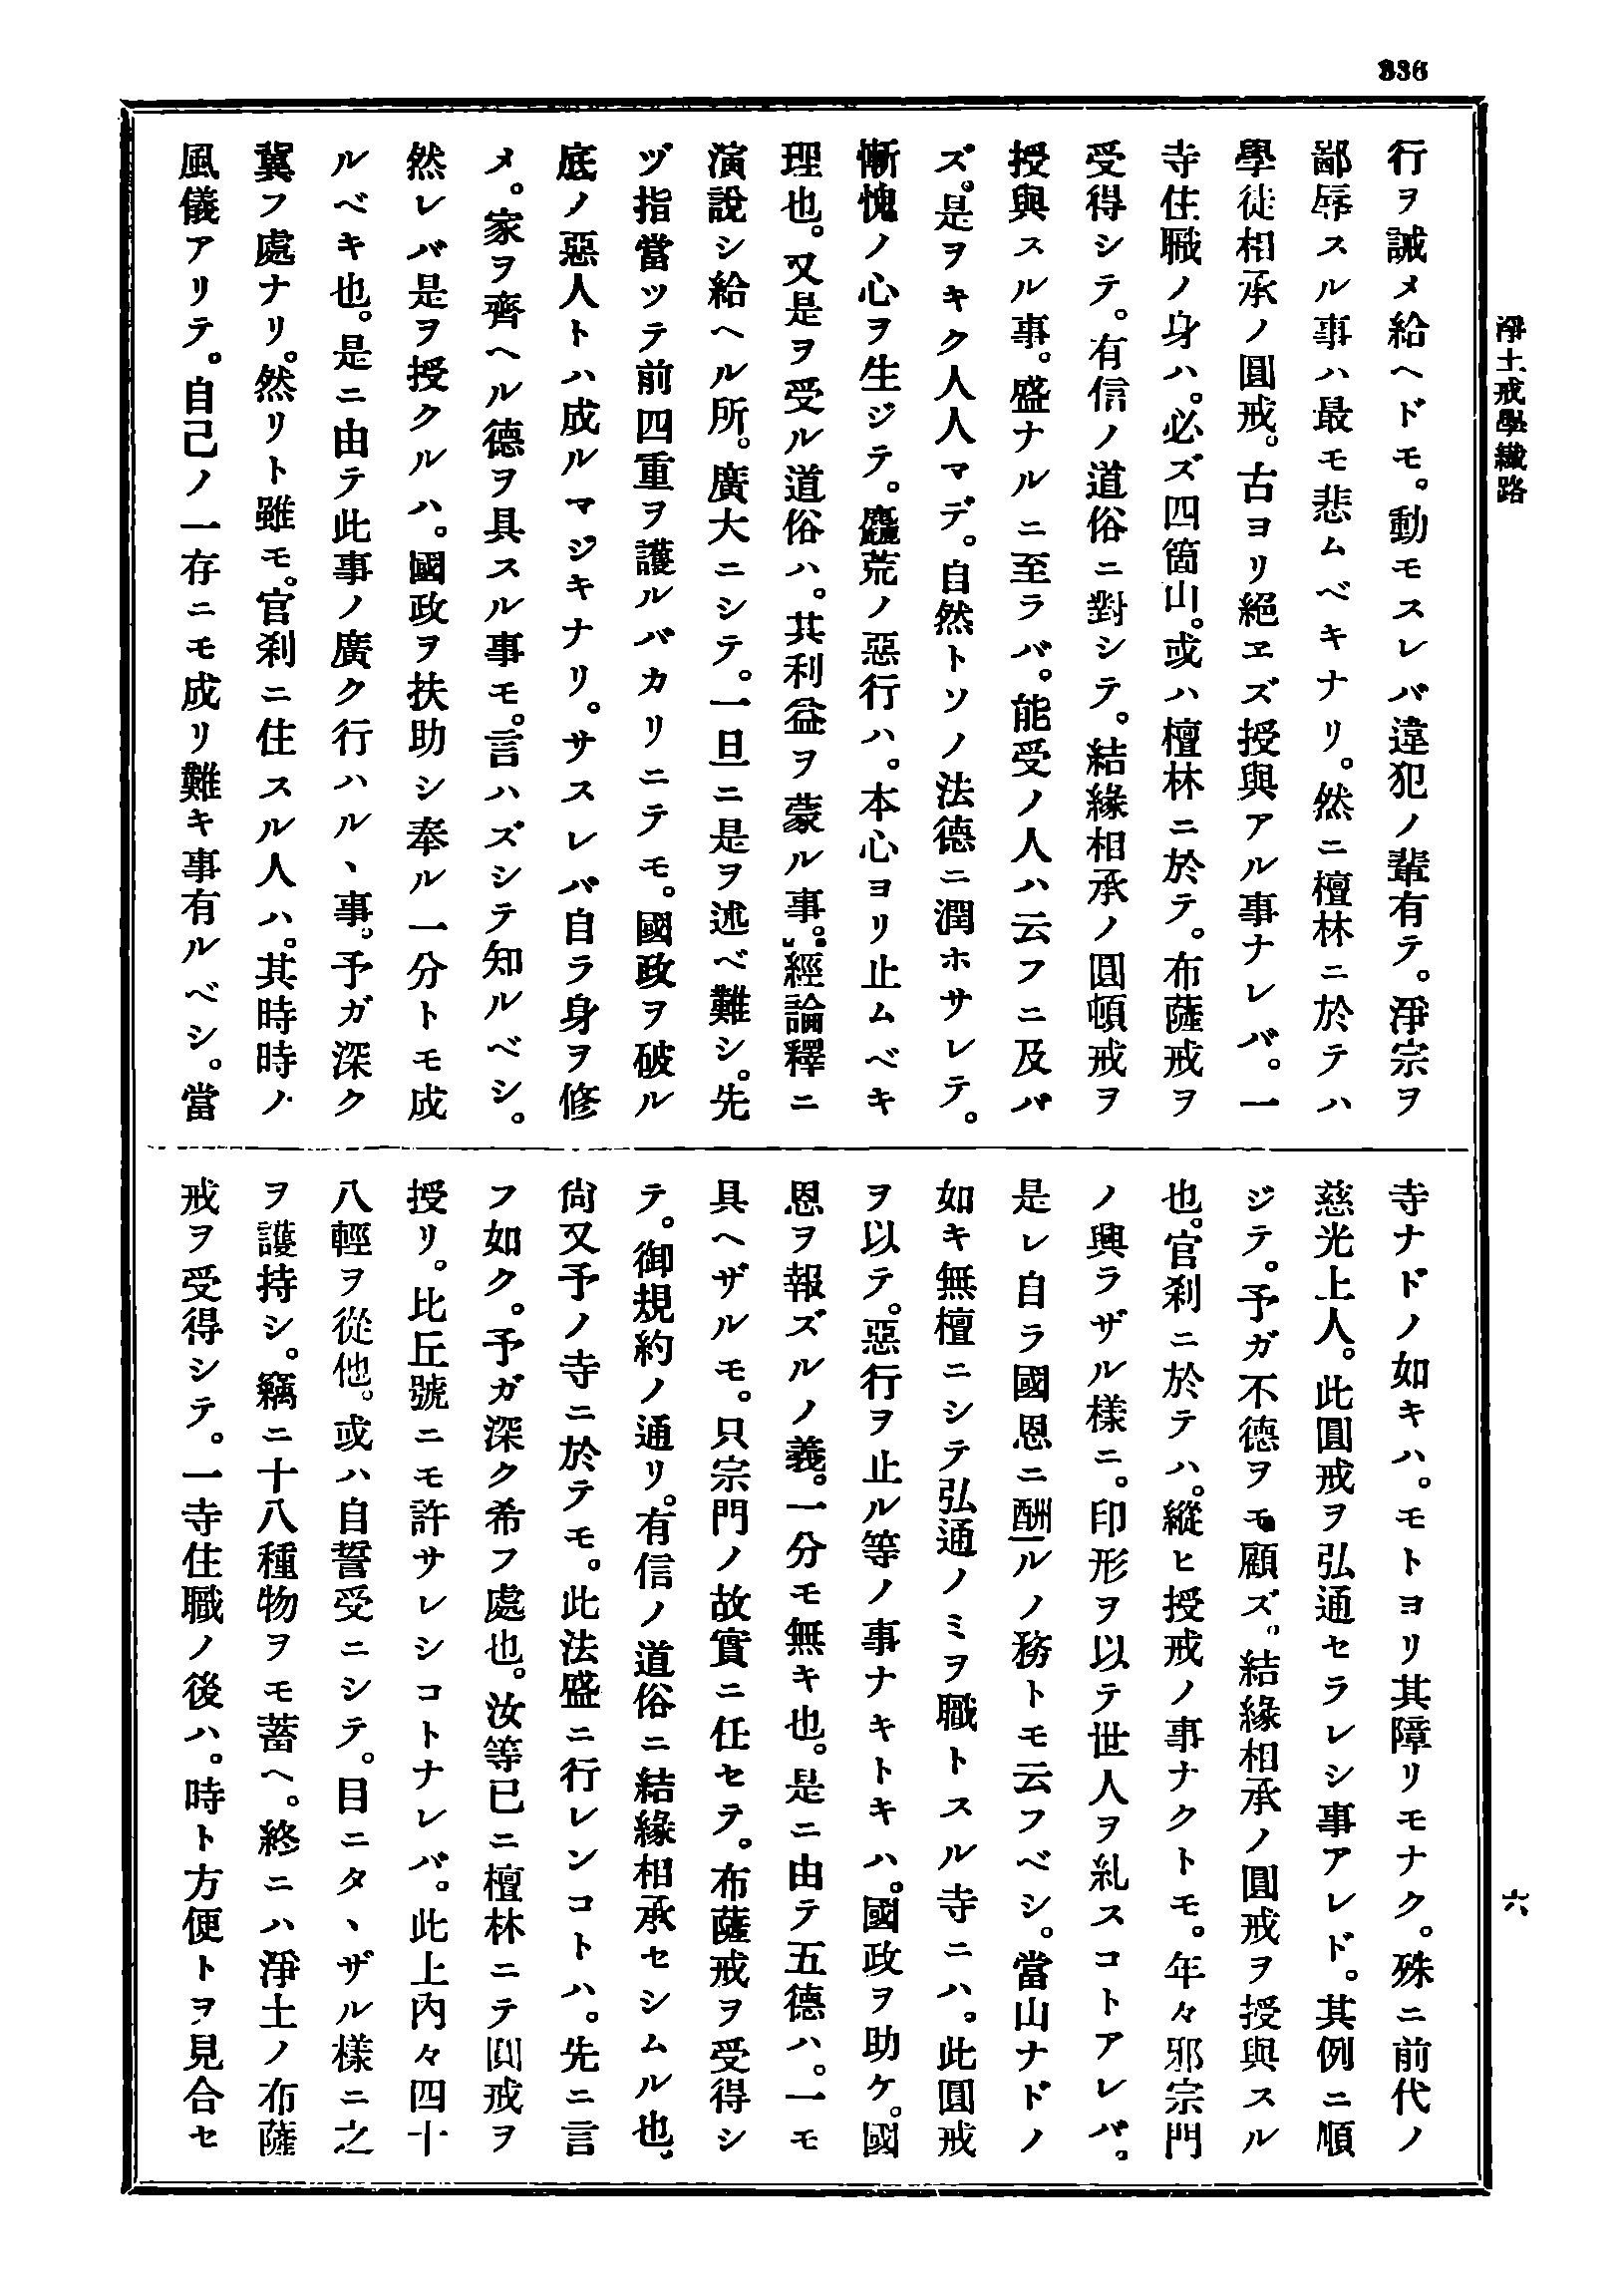 336
淨土戒學纎路
六
行ヲ誡メ給ヘドモ。動モスレバ違犯ノ輩有テ。淨宗ヲ
鄙辱スル事ハ最モ悲ムベキナリ。然ニ檀林ニ於テハ
學徒相承ノ圓戒。古ヨリ絕ヱズ授與アル事ナレバ。一
寺住職ノ身ハ。必ズ四箇山。或ハ檀林ニ於テ。布薩戒ヲ
受得シテ。有信ノ道俗ニ對シテ。結緣相承ノ圓頓戒ヲ
授與スル事。盛ナルニ至ラバ。能受ノ人ハ云フニ及バ
ズ。是ヲキク人人マデ。自然トソノ法德ニ潤ホサレテ。
慚愧ノ心ヲ生ジテ。麤荒ノ惡行ハ。本心ヨリ止ムベキ
理也。又是ヲ受ル道俗ハ。其利益ヲ蒙ル事。經論釋ニ
演說シ給ヘル所。廣大ニシテ。一旦ニ是ヲ述ベ難シ。先
ヅ指當ツテ前四重ヲ護ルバカリニテモ。國政ヲ破ル
底ノ惡人トハ成ルマジキナリ。サスレバ自ラ身ヲ修
メ。家ヲ齊ヘル德ヲ具スル事モ。言ハズシテ知ルベシ。
然レバ是ヲ授クルハ。國政ヲ扶助シ奉ル一分トモ成
ルベキ也。是ニ由テ此事ノ廣ク行ハル、事。予ガ深ク
冀フ處ナリ。然リト雖モ。官刹ニ住スル人ハ。其時時ノ
風儀アリテ。自己ノ一存ニモ成リ難キ事有ルベシ。當
寺ナドノ如キハ。モトヨリ其障リモナク。殊ニ前代ノ
慈光上人。此圓戒ヲ弘通セラレシ事アレド。其例ニ順
ジテ。予ガ不德ヲモ顧ズ。結緣相承ノ圓戒ヲ授與スル
也。官刹ニ於テハ。縱ヒ授戒ノ事ナクトモ。年々邪宗門
ノ興ラザル樣ニ。印形ヲ以テ世人ヲ糺スコトアレバ。
是レ自ラ國恩ニ酬ルノ務トモ云フベシ。當山ナドノ
如キ無檀ニシテ弘通ノミヲ職トスル寺ニハ。此圓戒
ヲ以テ。惡行ヲ止ル等ノ事ナキトキハ。國政ヲ助ケ。國
恩ヲ報ズルノ義。一分モ無キ也。是ニ由テ五德ハ。一モ
具ヘザルモ。只宗門ノ故實ニ任セテ。布薩戒ヲ受得シ
テ。御規約ノ通リ。有信ノ道俗ニ結緣相承セシムル也。
尙又予ノ寺ニ於テモ。此法盛ニ行レンコトハ。先ニ言
フ如ク。予ガ深ク希フ處也。汝等已ニ檀林ニテ圓戒ヲ
授リ。比丘號ニモ許サレシコトナレバ。此上內々四十
八輕ヲ從他。或ハ自誓受ニシテ。目ニタヽザル樣ニ之
ヲ護持シ。竊ニ十八種物ヲモ蓄ヘ。終ニハ淨土ノ布薩
戒ヲ受得シテ。一寺住職ノ後ハ。時ト方便トヲ見合セ